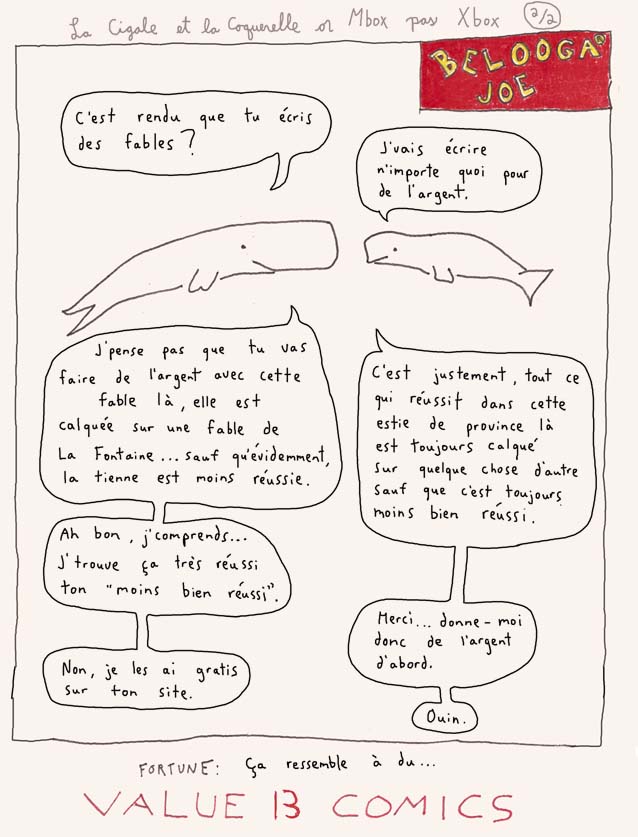 La Cigale et la Coquerelle or Mbox pas Xbox 2/2
BELOOGA
JOE
C'est rendu que tu écris
des fables?
J'vais écrire
n'importe quoi pour
de l'argent.
J'pense pas que tu vas
faire de l'argent avec cette
fable là, elle est
calquée sur une fable de
La Fontaine... sauf qu'évidemment,
la tienne est moins réussie.
C'est justement, tout ce
qui réussit dans cette
estie de province là
est toujours calqué
sur quelque chose d'autre
sauf que c'est toujours
moins bien réussi.
Ah bon, j'comprends...
J'trouve ça très réussi
ton "moins bien réussi".
Merci... donne-moi
donc de l'argent
d'abord.
Non, je les ai gratis
sur ton site.
Ouin.
FORTUNE: Ça ressemble à du...
VALUE 13 COMICS